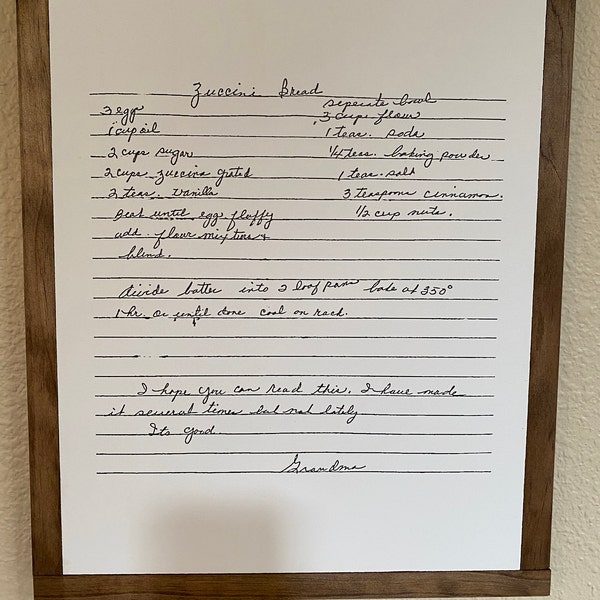 Zuccini Bread
3 eggs
1 cup oil
2 cups sugar
2 cups zuccina grated
2 teas. vanilla
Beat until egg fluffy
add flour mixture &
blend.
seperate bowl
3 cups flour
1 teas. soda
1/4 teas. baking powder
1 teas. salt
3 teaspoons cinnamon.
1/2 cup nuts.
divide batter into 2 loaf pans bake at 350°
1 hr. or until done cool on rack.
I hope you can read this. I have made
it several times but not lately
Its good
Grandma